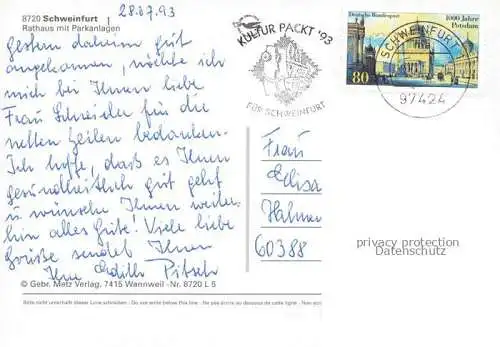 8720 Schweinfurt
Rathaus mit Parkanlagen
28.07.93
Gestern daheim gut
angekommen, möchte ich
mich bei Ihnen liebe
Frau Schneider für die
netten Zeilen bedanken.
Ich hoffe, daß es Ihnen
gesundheitlich gut geht
u. wünsche Ihnen weiter-
hin alles Gute! Viele liebe
Grüße sendet Ihnen
Ihre Edith Pitsch
© Gebr. Metz Verlag, 7415 Wannweil - Nr. 8720 L 5
Bitte nicht unterhalb dieser Linie schreiben - Do not write below this line - Ne pas écrire au dessous de cette ligne - Non
KULTUR PACKT '93
FÜR SCHWEINFURT
Deutsche Bundespost
1000 Jahre
Potsdam
80
SCHWEINFURT
97424
Frau
60388
privacy protection
Datenschutz